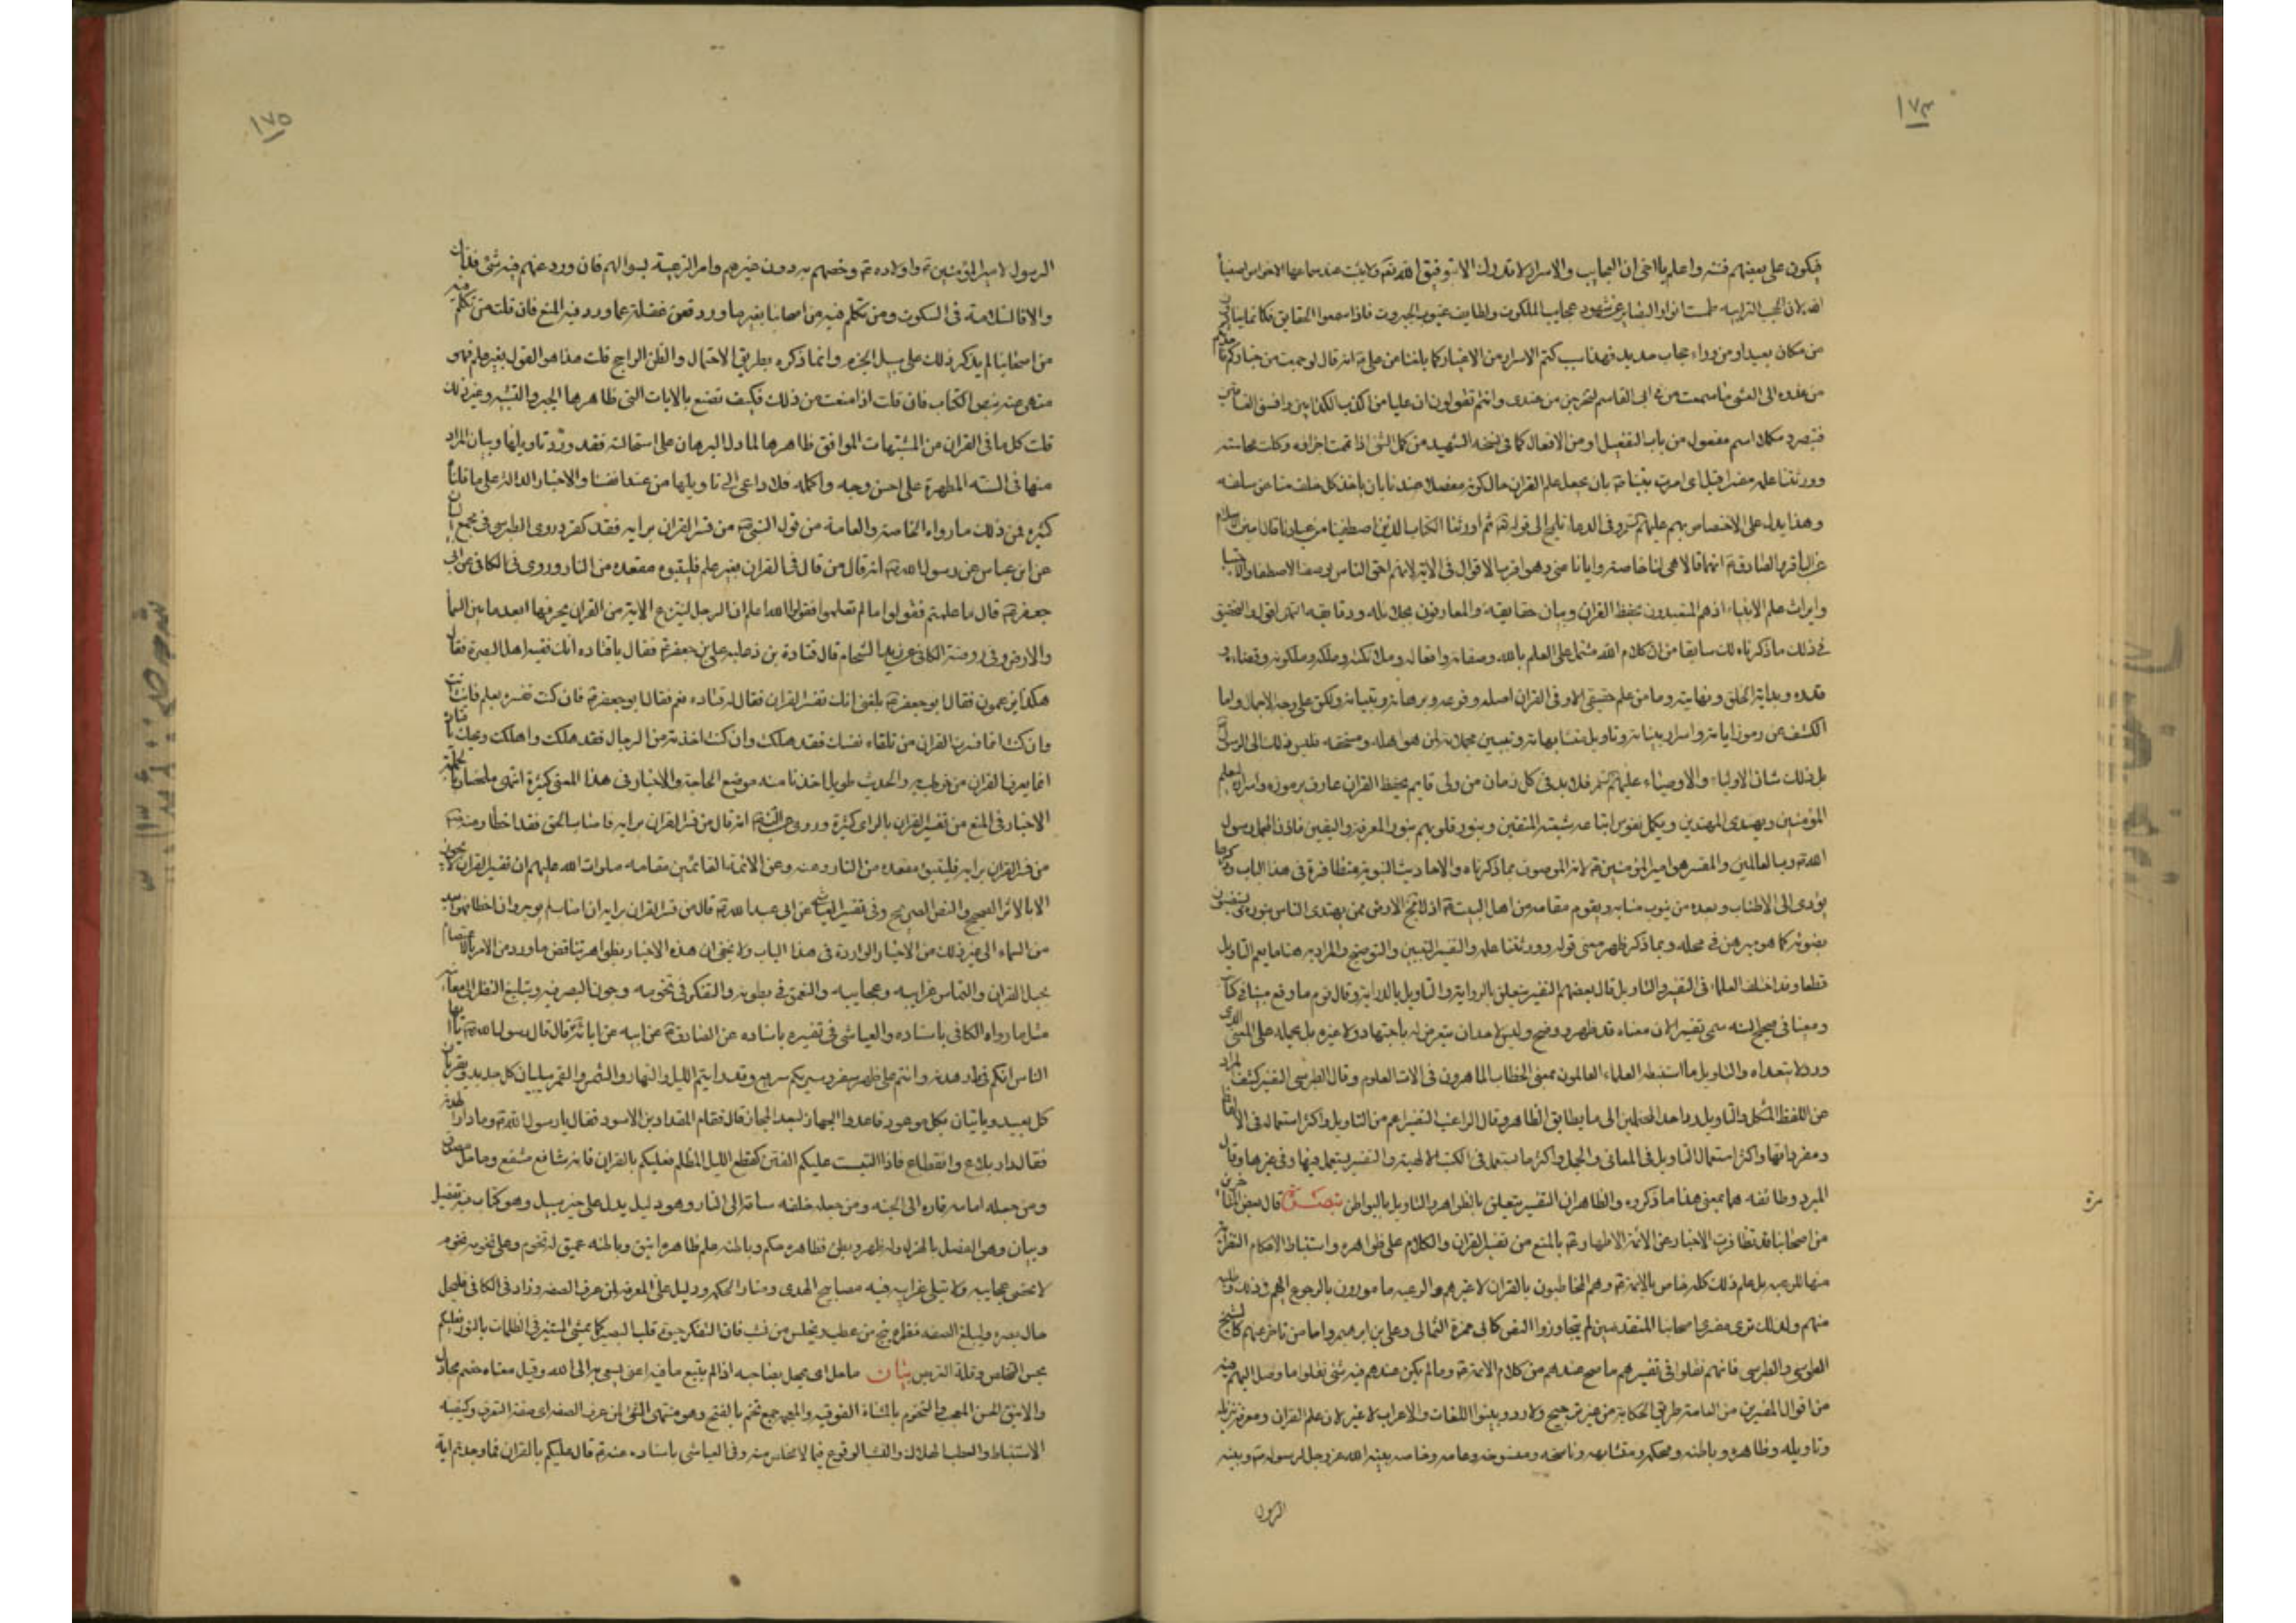 ١٧٤
فيكون على بعضهم فتنة واعلم يا اخى ان العجايب والاسرار لا تدرك الا بتوفيق الله تعه
من مكان بعيد او من وراء حجاب حديد فهذا سبب كتم الاسرار من الاغيار كما بلغنا من على انه قال لو جمعت من خياركم
من غدوه الى العشى ما سمعت من فى ابى القاسم لتخرجن من عندى وانتم تقولون ان عليا من اكذب الكذابين وافسق الفاسقين
اسم مفعول من باب التفعيل او من الافعال كما فى نسخه الشهيد من كمل الشئ اذا تمت اجزاؤه وكملت محاسنه
وورثتنا علمه مفسرا قيل اى امرت نبيك بان يجعل علم القران حالكونه مفصلا عندنا بان ياخذ كل خلف منا من سلفه
وهذا يدل على الاختصاص بهم عليهم السلم وفى الدعا تلميح الى قوله تعه ثم اورثنا الكتاب الذين اصطفينا من عبادنا
عن الباقر والصادق انهما قالا هى لنا خاصة وايانا عنى وهو اقرب الاقوال فى الاية لانهم احق الناس بوصف الاصطفاء والاجتباء
وايراث علم الانبياء اذ هم المتعبدون بحفظ القران وبيان حقايقه والعارفون بجلائله ودقايقه انتهى اقول والتحقيق
فى ذلك ما ذكرناه لك سابقا من ان كلام الله مشتمل على العلم بالله وصفاته وافعاله وملائكته وملكه وملكوته وقضاءه و
قدره وبداية الخلق ونهايته وما من علم حقيقى الا وفى القران اصله وفرعه وبرهانه وتبيانه ولكن على وجه الاجمال واما
الكشف عن رموز اياته واسرار بيناته وتاويل متشابهاته وتبيين مجملاته لمن هو اهله ومستحقه فليس ذلك الى الرسول
بل ذلك شان الاولياء والاوصياء عليهم السلم فلا بد فى كل زمان من ولى قايم بحفظ القران عارف برموزه واسراره ليعلم
المؤمنين ويهدى المهتدين ويكمل نفوس اتباعه وشيعته المتقين وينور قلوبهم بنور المعرفة واليقين
والمفسر هو امير المؤمنين لانه الموصوف بما ذكرناه والاحاديث النبوية متظافرة فى هذا الباب
يؤدى الى الاطناب وبعده من ينوب منابه ويقوم مقامه من اهل البيت اذ لا تخ الارض ممن يهتدى الناس بنوره
بضوئه كما هو مبرهن فى محله وبما ذكر ظهر معنى قوله وورثتنا علمه والتفسير التبيين والتوضيح والمراد به هنا ما يعم التاويل
قطعا وقد اختلف العلماء فى التفسير والتاويل قال بعضهم التفسير يتعلق بالرواية والتاويل بالدراية وقال قوم ما وقع مبينا فى كتاب
ومعينا فى صحيح السنه سمى تفسيرا لان معناه قد ظهر ووضح وليس لاحد ان يتعرض له باجتهاد ولا غيره بل يحمله على المعنى الذى
ورد لا يتعداه والتاويل ما استنبطه العلماء العالمون بمعنى الخطاب الماهرون فى الات العلوم وقال الطبرسى التفسير كشف المراد
عن اللفظ المشكل والتاويل رد احد المحتملين الى ما يطابق الظاهر وقال الراغب التفسير اعم من التاويل واكثر استعماله فى الالفاظ
ومفرداتها واكثر استعمال التاويل فى المعانى والجمل واكثر ما يستعمل فى الكتب الالهية والتفسير يستعمل فيها وفى غيرها وقال
المبرد وطائفه هما بمعنى هذا ما ذكروه والظاهر ان التفسير يتعلق بالظواهر والتاويل بالبواطن تبصرة قال بعض المتاخرين
من اصحابنا قد تظافرت الاخبار عن الائمة الاطهار بالمنع من تفسير القران والكلام على ظواهره واستنباط الاحكام النظرية
منها للرعيه بل علم ذلك كله خاص بالائمة وهم المخاطبون بالقران لا غيرهم والرعيه مامورون بالرجوع اليهم فى ذلك
منهم ولذلك ترى مفسرى اصحابنا المتقدمين لم يتجاوزوا النص كابى حمزة الثمالى وعلى بن ابراهيم واما من تاخر عنهم كالشيخ
الطوسى والطبرسى فانهم نقلوا فى تفسيرهم ما صح عندهم من كلام الائمة وما لم يكن عندهم فيه شئ نقلوا ما وصل اليهم فيه
من اقوال المفسرين من العامة طريق الحكاية من غير ترجيح ولا رد وبينوا اللغات والاعراب لا غير لان علم القران ومعرفة تنزيله
وتاويله وظاهره وباطنه ومحكمه ومتشابهه وناسخه ومنسوخه وعامه وخاصه بينه الله عز وجل لرسوله وبينه
الرسول
١٧٥
الرسول لامير المؤمنين واولاده وخصهم به دون غيرهم وامر الرعية بسوالهم فان ورد عنهم فيه شئ فذاك
والا فالسلامة فى السكوت ومن تكلم فيه من اصحابنا بغير ما ورد فعن غفلة عما ورد فيه المنع فان قلت من تكلم فيه
من اصحابنا لم يذكر ذلك على سبيل الجزم وانما ذكره بطريق الاحتمال والظن الراجح قلت هذا هو القول بغير علم فهو
منهى عنه بنص الكتاب فان قلت اذا منعت من ذلك فكيف تصنع بالايات التى ظاهرها الجبر والتشبيه وغير ذلك
قلت كل ما فى القران من المشتبهات الموافق ظاهرها لما دل البرهان على استحالته فقد ورد تاويلها وبيان المراد
منها فى السنه المطهرة على احسن وجه واكمله فلا داعى الى تاويلها من عند انفسنا والاخبار الدالة على ما قلنا
كثيرة فمن ذلك ما رواه الخاصة والعامة من قول النبى من فسر القران برايه فقد كفر وروى الطبرسى فى مجمع البيان
عن ابن عباس عن رسول الله انه قال من قال فى القران بغير علم فليتبوء مقعده من النار وروى فى الكافى عن ابى
جعفر قال ما علمتم فقولوا وما لم تعلموا فقولوا الله اعلم ان الرجل لينتزع الاية من القران يخر فيها ابعد ما بين السماء
والارض وفى روضة الكافى عن زيد الشحام قال قتادة بن دعامة على ابى جعفر فقال يا قتاده انك فقيه اهل البصرة فقال
هكذا يزعمون فقال ابو جعفر بلغنى انك تفسر القران فقال له قتاده نعم فقال ابو جعفر فان كنت تفسره بعلم فانت انت
وان كنت انما فسرت القران من تلقاء نفسك فقد هلكت وان كنت اخذته من الرجال فقد هلكت واهلكت ويحك يا قتادة
انما يعرف القران من خوطب به والحديث طويل اخذنا منه موضع الحاجة والاخبار فى هذا المعنى كثيرة انتهى ملخصا
الاخبار فى المنع من تفسير القران بالراى كثيرة وروى عن النبى انه قال من فسر القران برايه فاصاب الحق فقد اخطا ومنه
من فسر القران برايه فليتبوء مقعده من النار وعنه وعن الائمة القائمين مقامه صلوات الله عليهم ان تفسير القران لا يجوز
الا بالاثر الصحيح والنص الصريح وفى تفسير العياشى عن ابى عبد الله قال من فسر القران برايه ان اصاب لم يوجر وان اخطا فهو ابعد
من السماء الى غير ذلك من الاخبار الواردة فى هذا الباب ولا يخفى ان هذه الاخبار بظواهرها تناقض ما ورد من الامر بالاعتصام
بحبل القران والتماس غرايبه وعجايبه والتعمق فى بطونه والتفكر فى تخومه وجولان البصر فيه وتبليغ النظر الى معانيه
مثل ما رواه الكافى باسناده والعياشى فى تفسيره باسناده عن الصادق عن ابيه عن ابائه قال قال رسول الله يا ايها
الناس انكم فى دار هدنة وانتم على ظهر سفر والسير بكم سريع وقد رايتم الليل والنهار والشمس والقمر يبليان كل جديد ويقربان
كل بعيد وياتيان بكل موعود فاعدوا الجهاز لبعد المجاز قال فقام المقداد بن الاسود فقال يا رسول الله وما دار الهدنة
فقال دار بلاغ وانقطاع فاذا التبست عليكم الفتن كقطع الليل المظلم فعليكم بالقران فانه شافع مشفع وماحل مصدق
ومن جعله امامه قاده الى الجنه ومن جعله خلفه ساقه الى النار وهو دليل يدل على خير سبيل وهو كتاب فيه تفصيل
وبيان وهو الفصل بالهزل وله ظهر وبطن فظاهره حكم وباطنه علم ظاهره انيق وباطنه عميق له تخوم وعلى تخومه تخوم
لا تحصى عجايبه ولا تبلى غرايبه فيه مصابيح الهدى ومنار الحكمه ودليل على المعرفه لمن عرف الصفه وزاد فى الكافى فليجل
جال بصره وليبلغ الصفه نظره ينج من عطب ويخلص من نشب فان التفكر حيوة قلب البصير كما يمشى المستنير فى الظلمات بالنور فعليكم
بحسن التخلص وقلة التربص بيان ماحل اى يمحل بصاحبه اذا لم يتبع ما فيه اعنى يسعى به الى الله وقيل معناه خصم مجادل
والانيق الحسن المعجب والتخوم بالمثناة الفوقيه والمعجمه جمع تخم بالفتح وهو منتهى الشئ لمن عرف الصفه اى صفة التعرف وكيفيه
الاستنباط والعطب الهلاك والنشب الوقوع فيما لا مخلص منه وفى العياشى باسناده عنه قال عليكم بالقران فما وجدتم اية